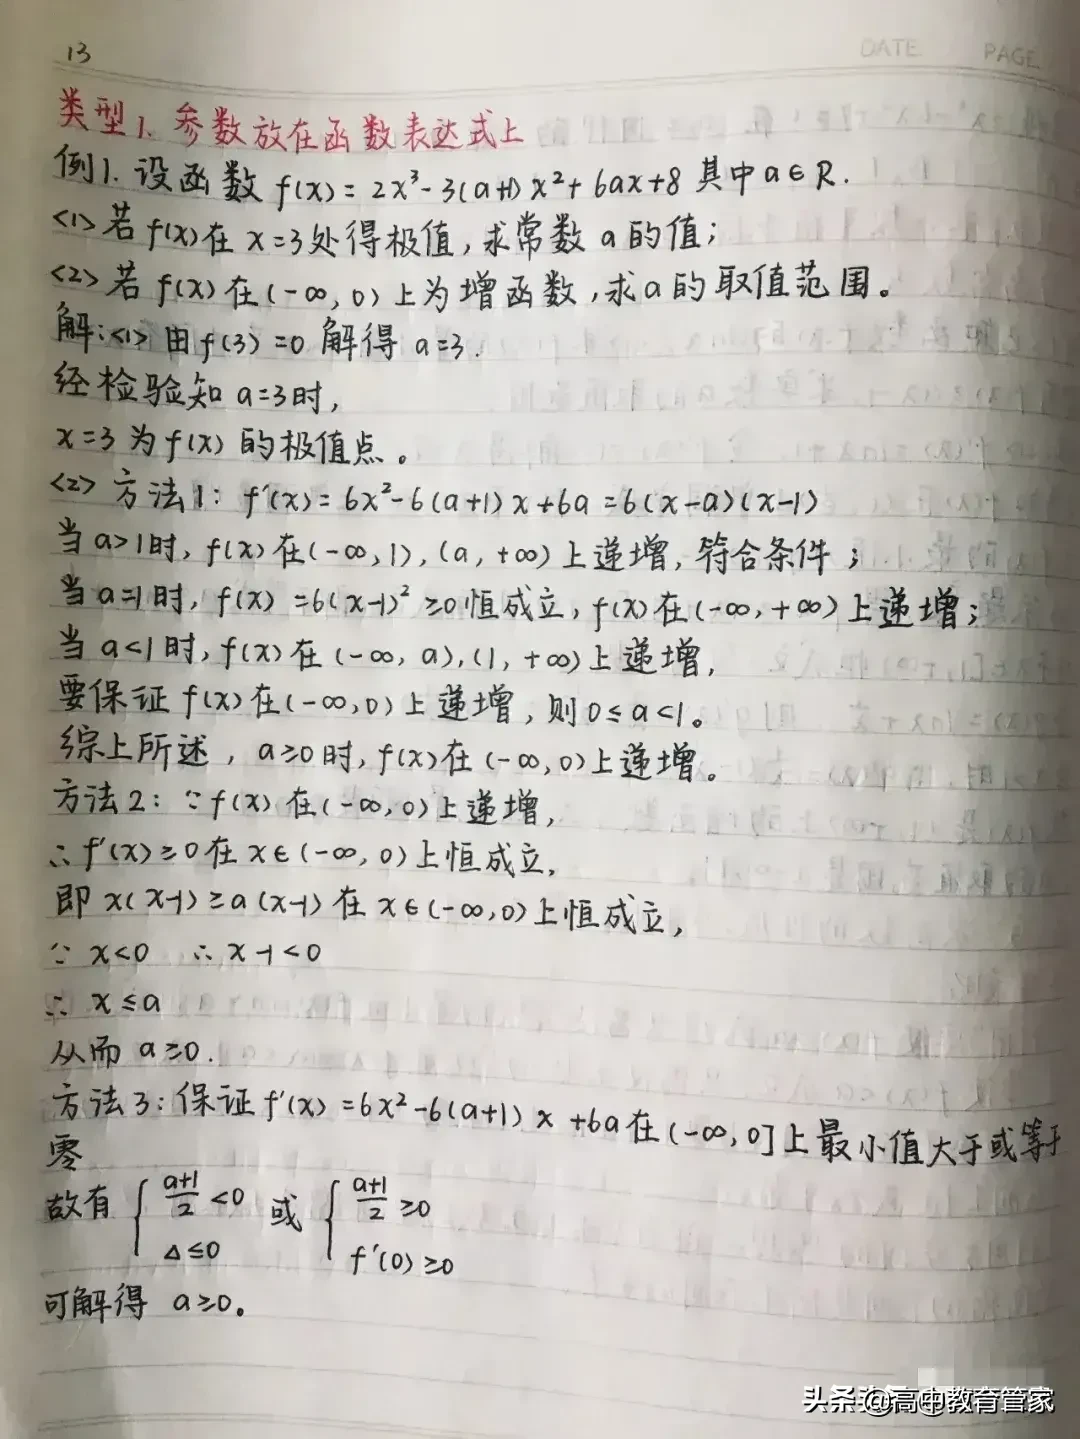 13
DATE PAGE
类型1. 参数放在函数表达式上
例1. 设函数 f(x) = 2x³-3(a+1)x²+6ax+8 其中a∈R.
<1>若f(x)在x=3处得极值,求常数a的值;
<2>若f(x)在(-∞,0)上为增函数,求a的取值范围。
解:<1>由f(3)=0解得a=3.
经检验知a=3时,
x=3为f(x)的极值点。
<2>方法1: f'(x)=6x²-6(a+1)x+6a=6(x-a)(x-1)
当a>1时,f(x)在(-∞,1),(a,+∞)上递增,符合条件;
当a=1时,f(x)=6(x-1)²≥0恒成立,f(x)在(-∞,+∞)上递增;
当a<1时,f(x)在(-∞,a),(1,+∞)上递增,
要保证f(x)在(-∞,0)上递增,则0≤a<1。
综上所述,a≥0时,f(x)在(-∞,0)上递增。
方法2:∵f(x)在(-∞,0)上递增,
∴f'(x)≥0在x∈(-∞,0)上恒成立,
即x(x-1)≥a(x-1)在x∈(-∞,0)上恒成立,
∵ x<0 ∴x-1<0
∴ x≤a
从而a≥0.
方法3:保证f'(x)=6x²-6(a+1)x+6a在(-∞,0]上最小值大于或等于
零
故有 { (a+1)/2<0 或 { (a+1)/2≥0
△≤0 f'(0)≥0
可解得 a≥0。
头条 @高中教育管家